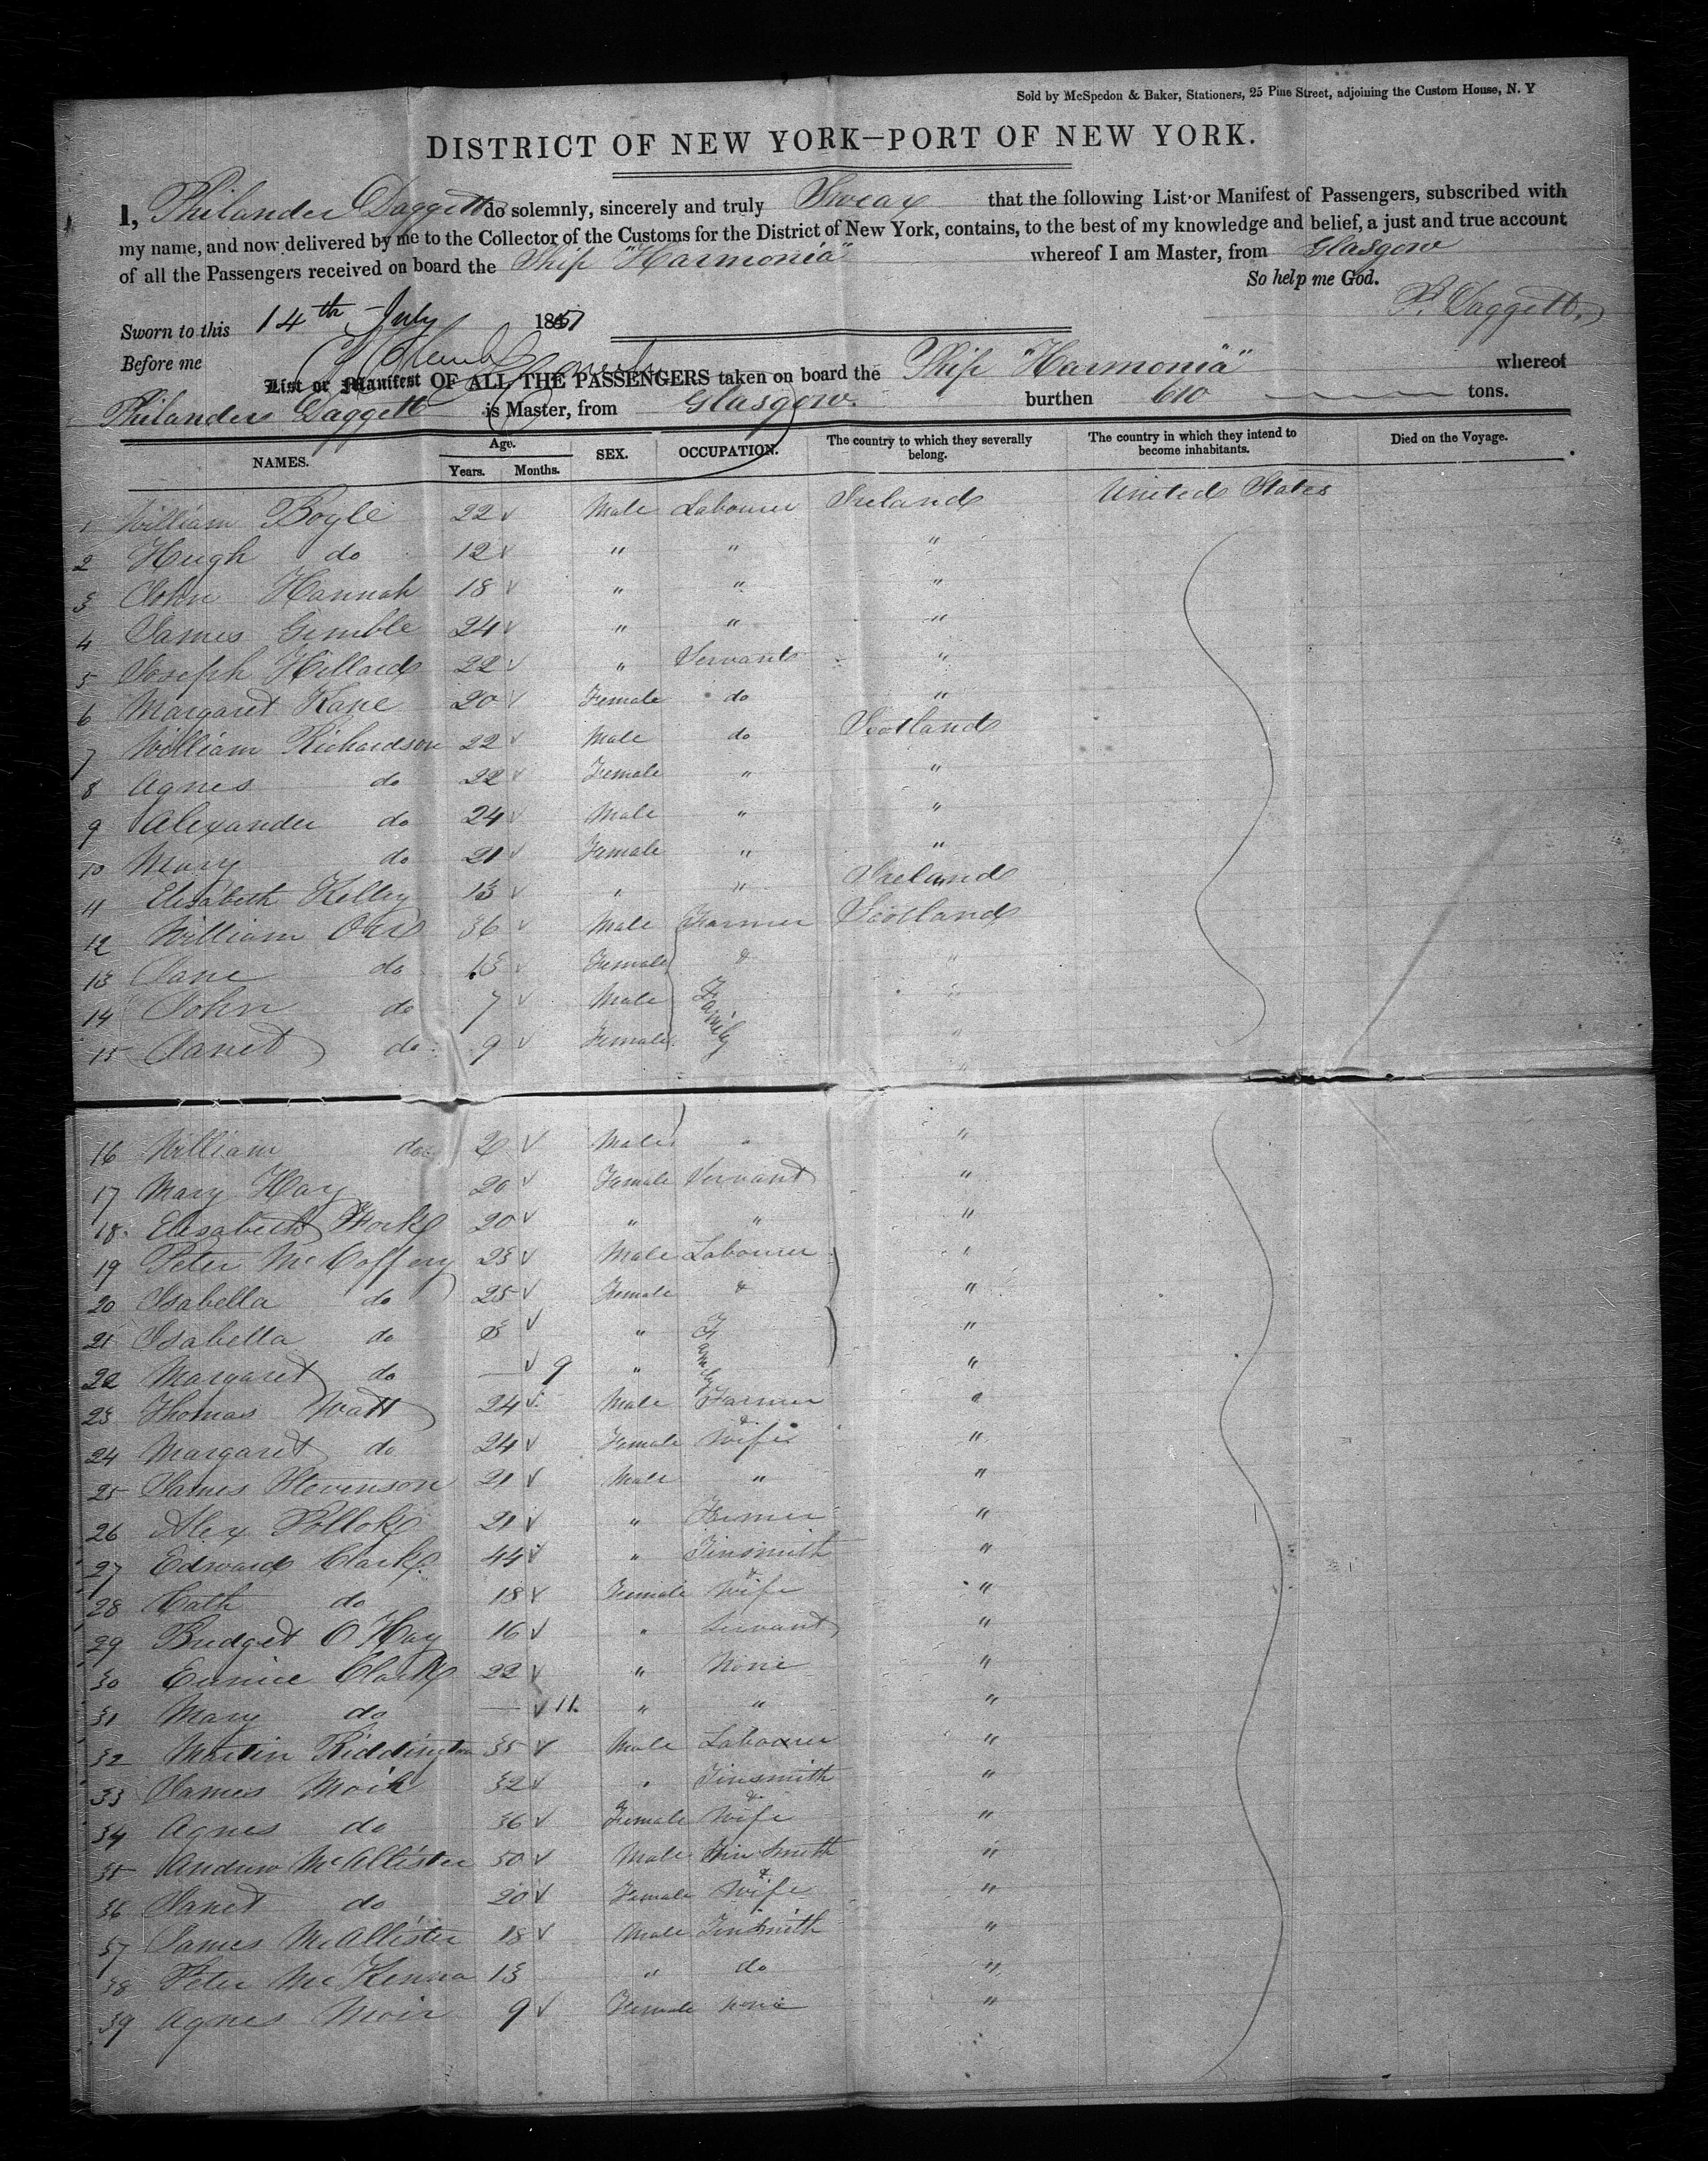 Sold by McSpedon & Baker, Stationers, 25 Pine Street, adjoining the Custom House, N. Y
DISTRICT OF NEW YORK—PORT OF NEW YORK.
I, Philander Daggett do solemnly, sincerely and truly Swear that the following List or Manifest of Passengers, subscribed with
my name, and now delivered by me to the Collector of the Customs for the District of New York, contains, to the best of my knowledge and belief, a just and true account
of all the Passengers received on board the Ship "Harmonia" whereof I am Master, from Glasgow
So help me God.
Sworn to this 14th July 1851 P. Daggett
Before me
List or Manifest OF ALL THE PASSENGERS taken on board the Ship "Harmonia" whereof
Philander Daggett is Master, from Glasgow. burthen 610 tons.
NAMES. Age. Years. Months. SEX. OCCUPATION. The country to which they severally belong. The country in which they intend to become inhabitants. Died on the Voyage.
1 William Boyle 22 ✓ Male Labourer Ireland United States
2 Hugh do 12 ✓ " " "
3 John Hannah 18 ✓ " " "
4 James Gemble 24 ✓ " " "
5 Joseph Hillard 22 ✓ " Servant "
6 Margaret Kane 20 ✓ Female do "
7 William Richardson 22 ✓ Male do Scotland
8 Agnes do 22 ✓ Female " "
9 Alexander do 24 ✓ Male " "
10 Mary do 21 ✓ Female " "
11 Elisabeth Kelley 13 ✓ " " Ireland
12 William Orr 36 ✓ Male Farmer Scotland
13 Jane do 13 ✓ Female & "
14 John do 7 ✓ Male Family "
15 Janet do 9 ✓ Female "
16 William do ✓ Male " "
17 Mary Hay 20 ✓ Female Servant "
18 Elisabeth 20 ✓ " " "
19 Peter McCoffery 23 ✓ Male Labourer "
20 Isabella do 25 ✓ Female & "
21 Isabella do 3 ✓ " Family "
22 Margaret do — ✓ 9 " "
23 Thomas Watt 24 ✓ Male Farmer "
24 Margaret do 24 ✓ Female & Wife "
25 James Stevenson 21 ✓ Male " "
26 Alex Pollok 21 ✓ " Farmer "
27 Edward Clark 44 ✓ " Tinsmith "
28 Cath do 18 ✓ Female & Wife "
29 Bridget O Hay 16 ✓ " Servant "
30 Eunice Clark 22 ✓ " None "
31 Mary do — ✓ 11. " " "
32 Martin Riddington 35 ✓ Male Labourer "
33 James Moir 32 ✓ " Tinsmith "
34 Agnes do 36 ✓ Female & Wife "
35 Andrew McAllister 50 ✓ Male Tin Smith "
36 Janet do 20 ✓ Female & Wife "
37 James McAllister 18 ✓ Male Tinsmith "
38 Peter McKenna 13 " do "
39 Agnes Moir 9 ✓ Female none "